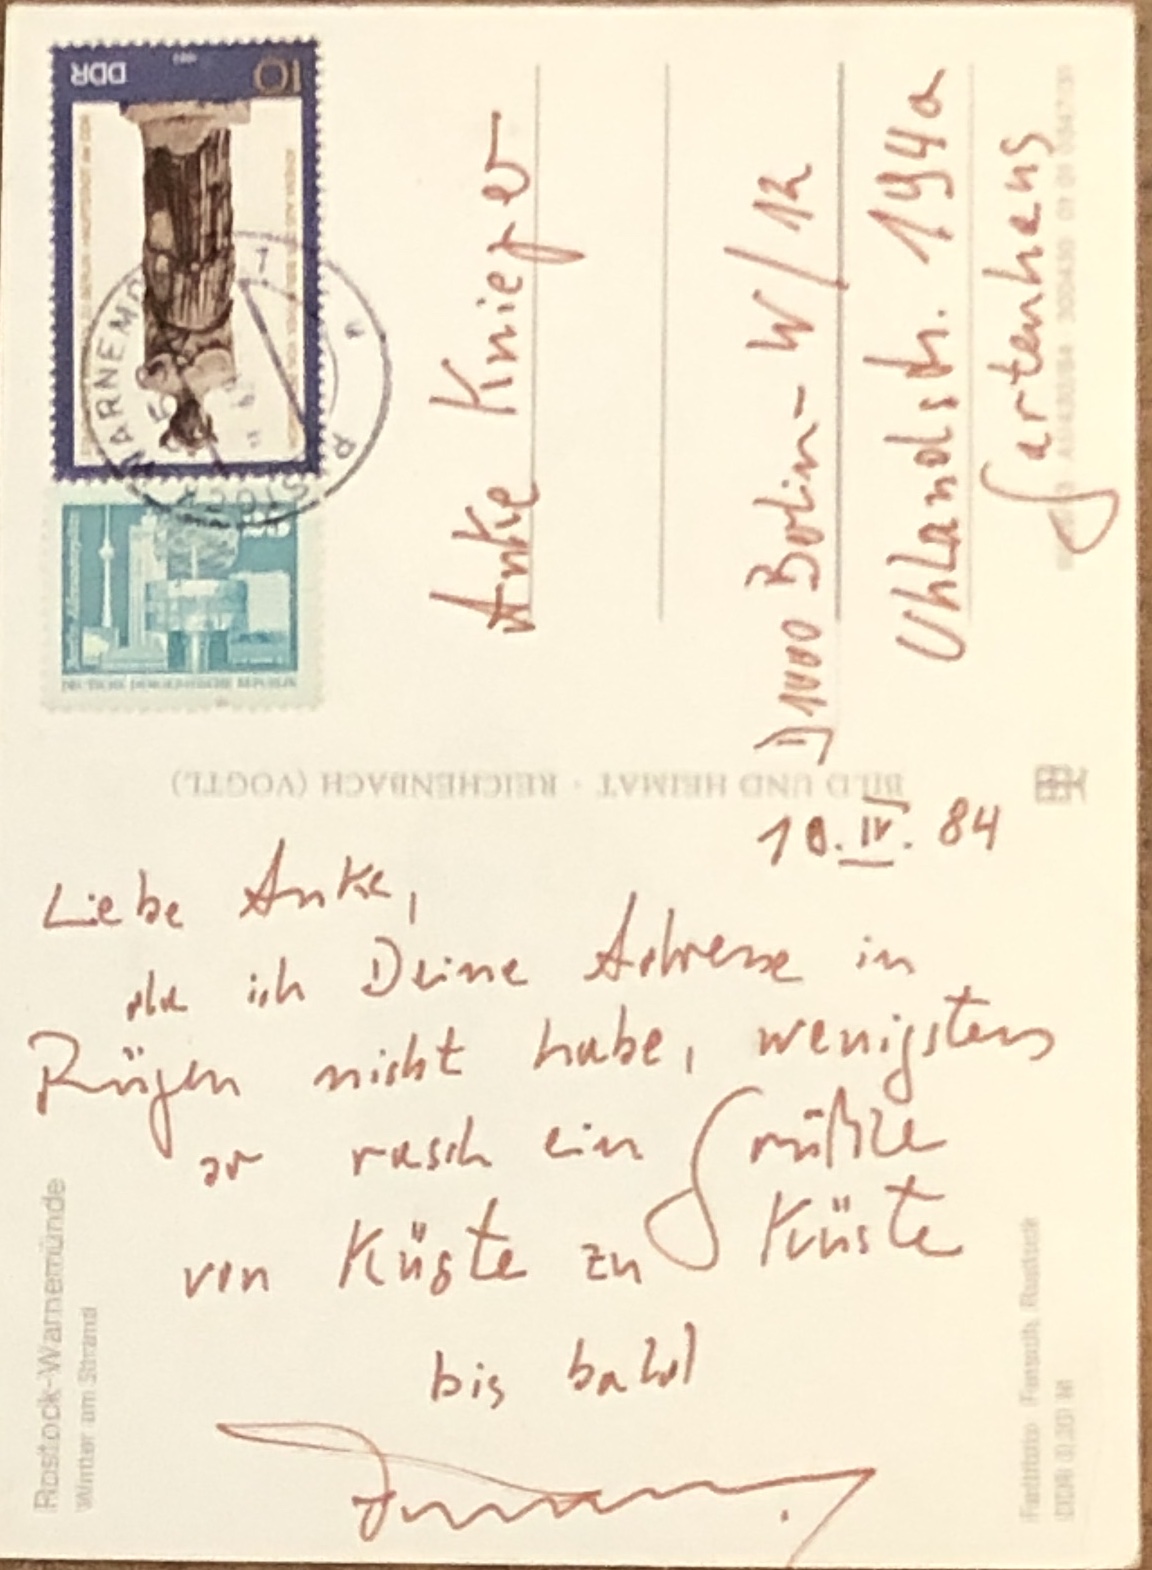 10.IV. 84
Liebe Anke,
da ich Deine Adresse in
Rügen nicht habe, wenigstens
so rasch ein Grüßle
von Küste zu Küste
bis bald
Anke Knieper
D 1000 Berlin-W/12
Uhlandstr. 194a
Gartenhaus
BILD UND HEIMAT · REICHENBACH (VOGTL)
Rostock-Warnemünde
Winter am Strand
DDR 0,20 M
DDR
10
WARNEMÜ